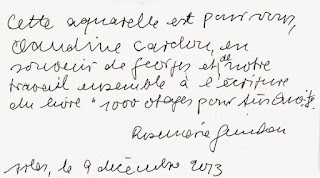 Cette aquarelle est pour vous,
Claudine Cardon, en
souvenir de georges et de notre
travail ensemble à l'écriture
du livre "1000 otages pour Auschwitz".
Rosemarie
le 9 décembre 2013